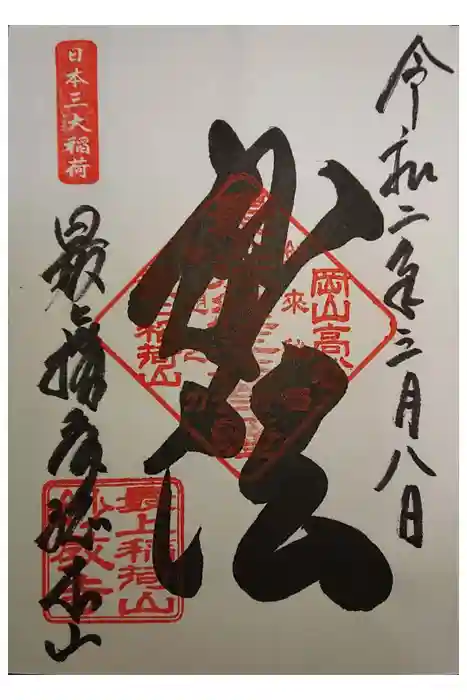 令和二年三月八日
妙法
岡山高
日本三大稲荷
最上稲荷総本山
最上稲荷山
妙教寺